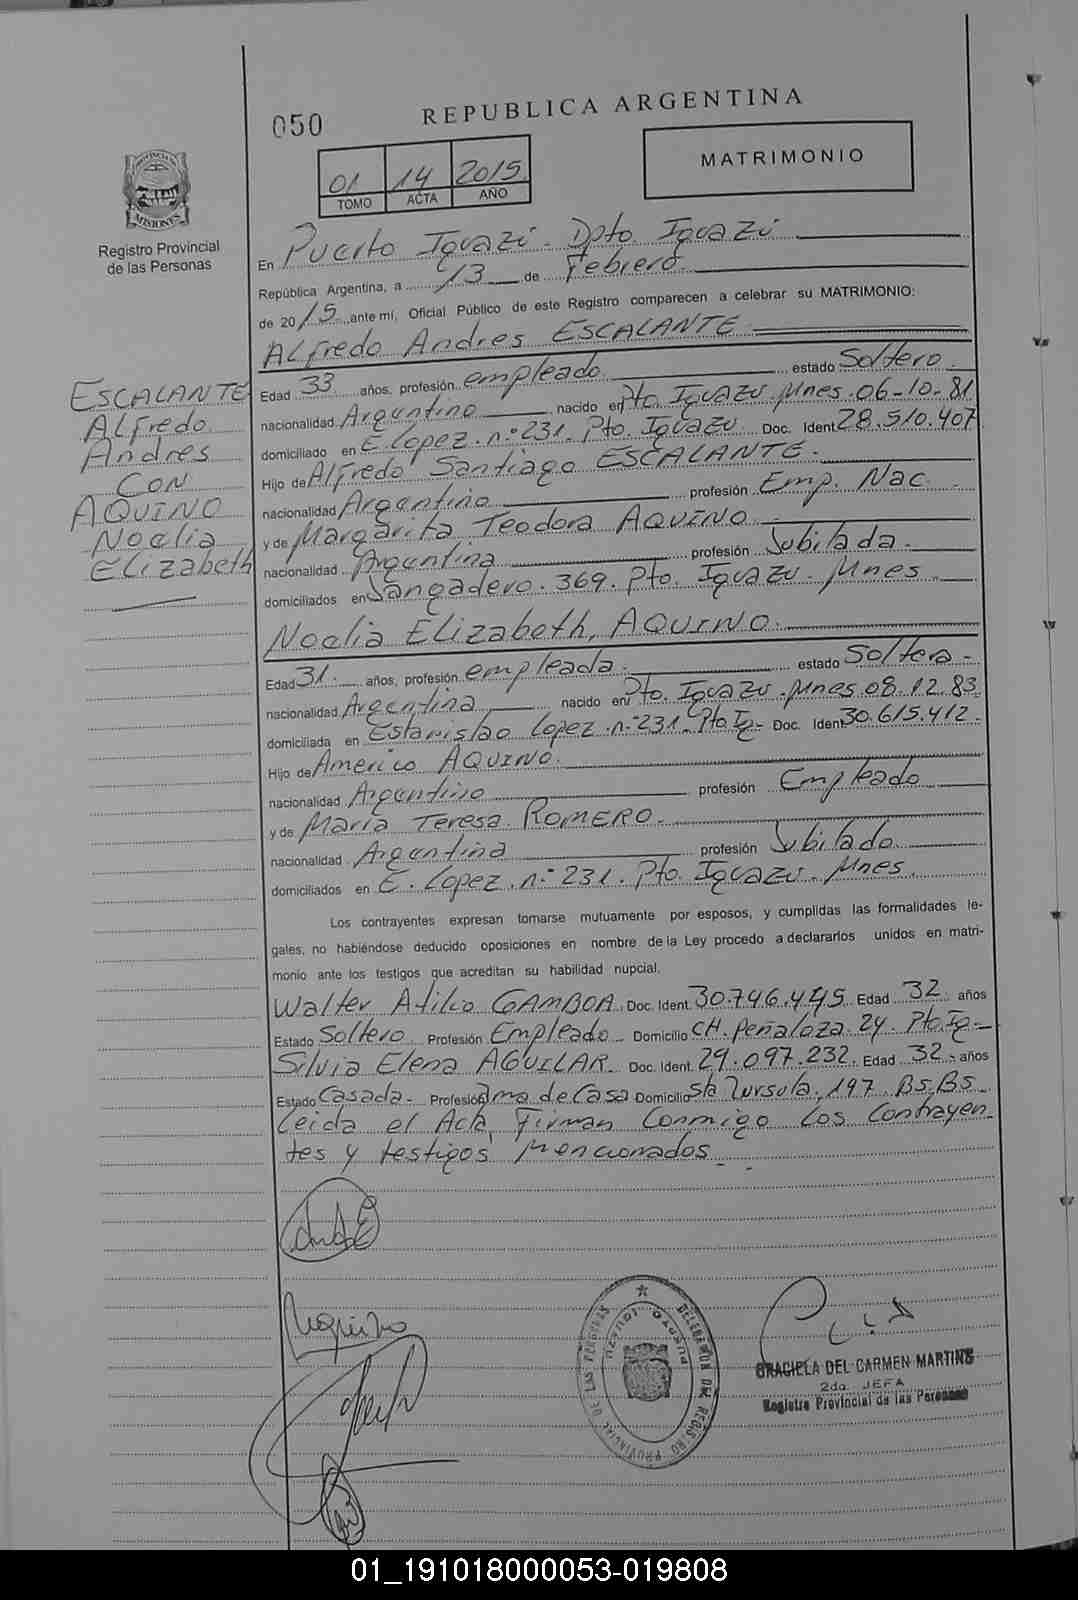 050
REPUBLICA ARGENTINA
MATRIMONIO
01 14 2015
TOMO ACTA AÑO
PROVINCIA DE
MISIONES
Registro Provincial
de las Personas
En Puerto Iguazú. Dpto. Iguazú
República Argentina, a 13 de Febrero.
de 2015 ante mí, Oficial Público de este Registro comparecen a celebrar su MATRIMONIO:
Alfredo Andres ESCALANTE
Edad 33 años, profesión empleado. estado Soltero.
nacionalidad Argentino nacido en Pto. Iguazu. Mnes. 06-10-81
domiciliado en E Lopez. n° 231. Pto. Iguazu. Doc. Ident 28.510.407
Hijo de Alfredo Santiago ESCALANTE.
nacionalidad Argentino profesión Emp. Nac.
y de Margarita Teodora AQUINO
nacionalidad Argentina profesión Jubilada.
domiciliados en Sangadero. 369. Pto. Iguazu. Mnes.
ESCALANTE
Alfredo
Andres
CON
AQUINO
Noelia
Elizabeth
Noelia Elizabeth, AQUINO.
Edad 31. años, profesión empleada. estado Soltera-
nacionalidad Argentina nacido en Pto. Iguazu. Mnes 08.12.83.
domiciliada en Estanislao Lopez. n° 231. Pto Ig- Doc. Ident 30.615.412-
Hijo de Americo AQUINO.
nacionalidad Argentino profesión Empleado
y de Maria Teresa ROMERO.
nacionalidad Argentina profesión Jubilado
domiciliados en E. Lopez. n° 231. Pto. Iguazu. Mnes.
Los contrayentes expresan tomarse mutuamente por esposos, y cumplidas las formalidades le-
gales, no habiéndose deducido oposiciones en nombre de la Ley procedo a declararlos unidos en matri-
monio ante los testigos que acreditan su habilidad nupcial.
Walter Atilio GAMBOA. Doc. Ident. 30.746.445 Edad 32 años
Estado Soltero Profesión Empleado Domicilio CH. Peñaloza. 24. Pto. Ig-
Silvia Elena AGUILAR. Doc. Ident. 29.097.232. Edad 32 años
Estado Casada. Profesión Ama de Casa Domicilio Sta Zursula. 197. Bs. Bs.
Leida el Acta, Firman Conmigo los Contrayen
tes y testigos, Mencionados.
DELEGACION DEL REGISTRO PROVINCIAL DE LAS PERSONAS
PUERTO IGUAZU
GRACIELA DEL CARMEN MARTINS
2da. JEFA
Registro Provincial de las Personas
01_191018000053-019808